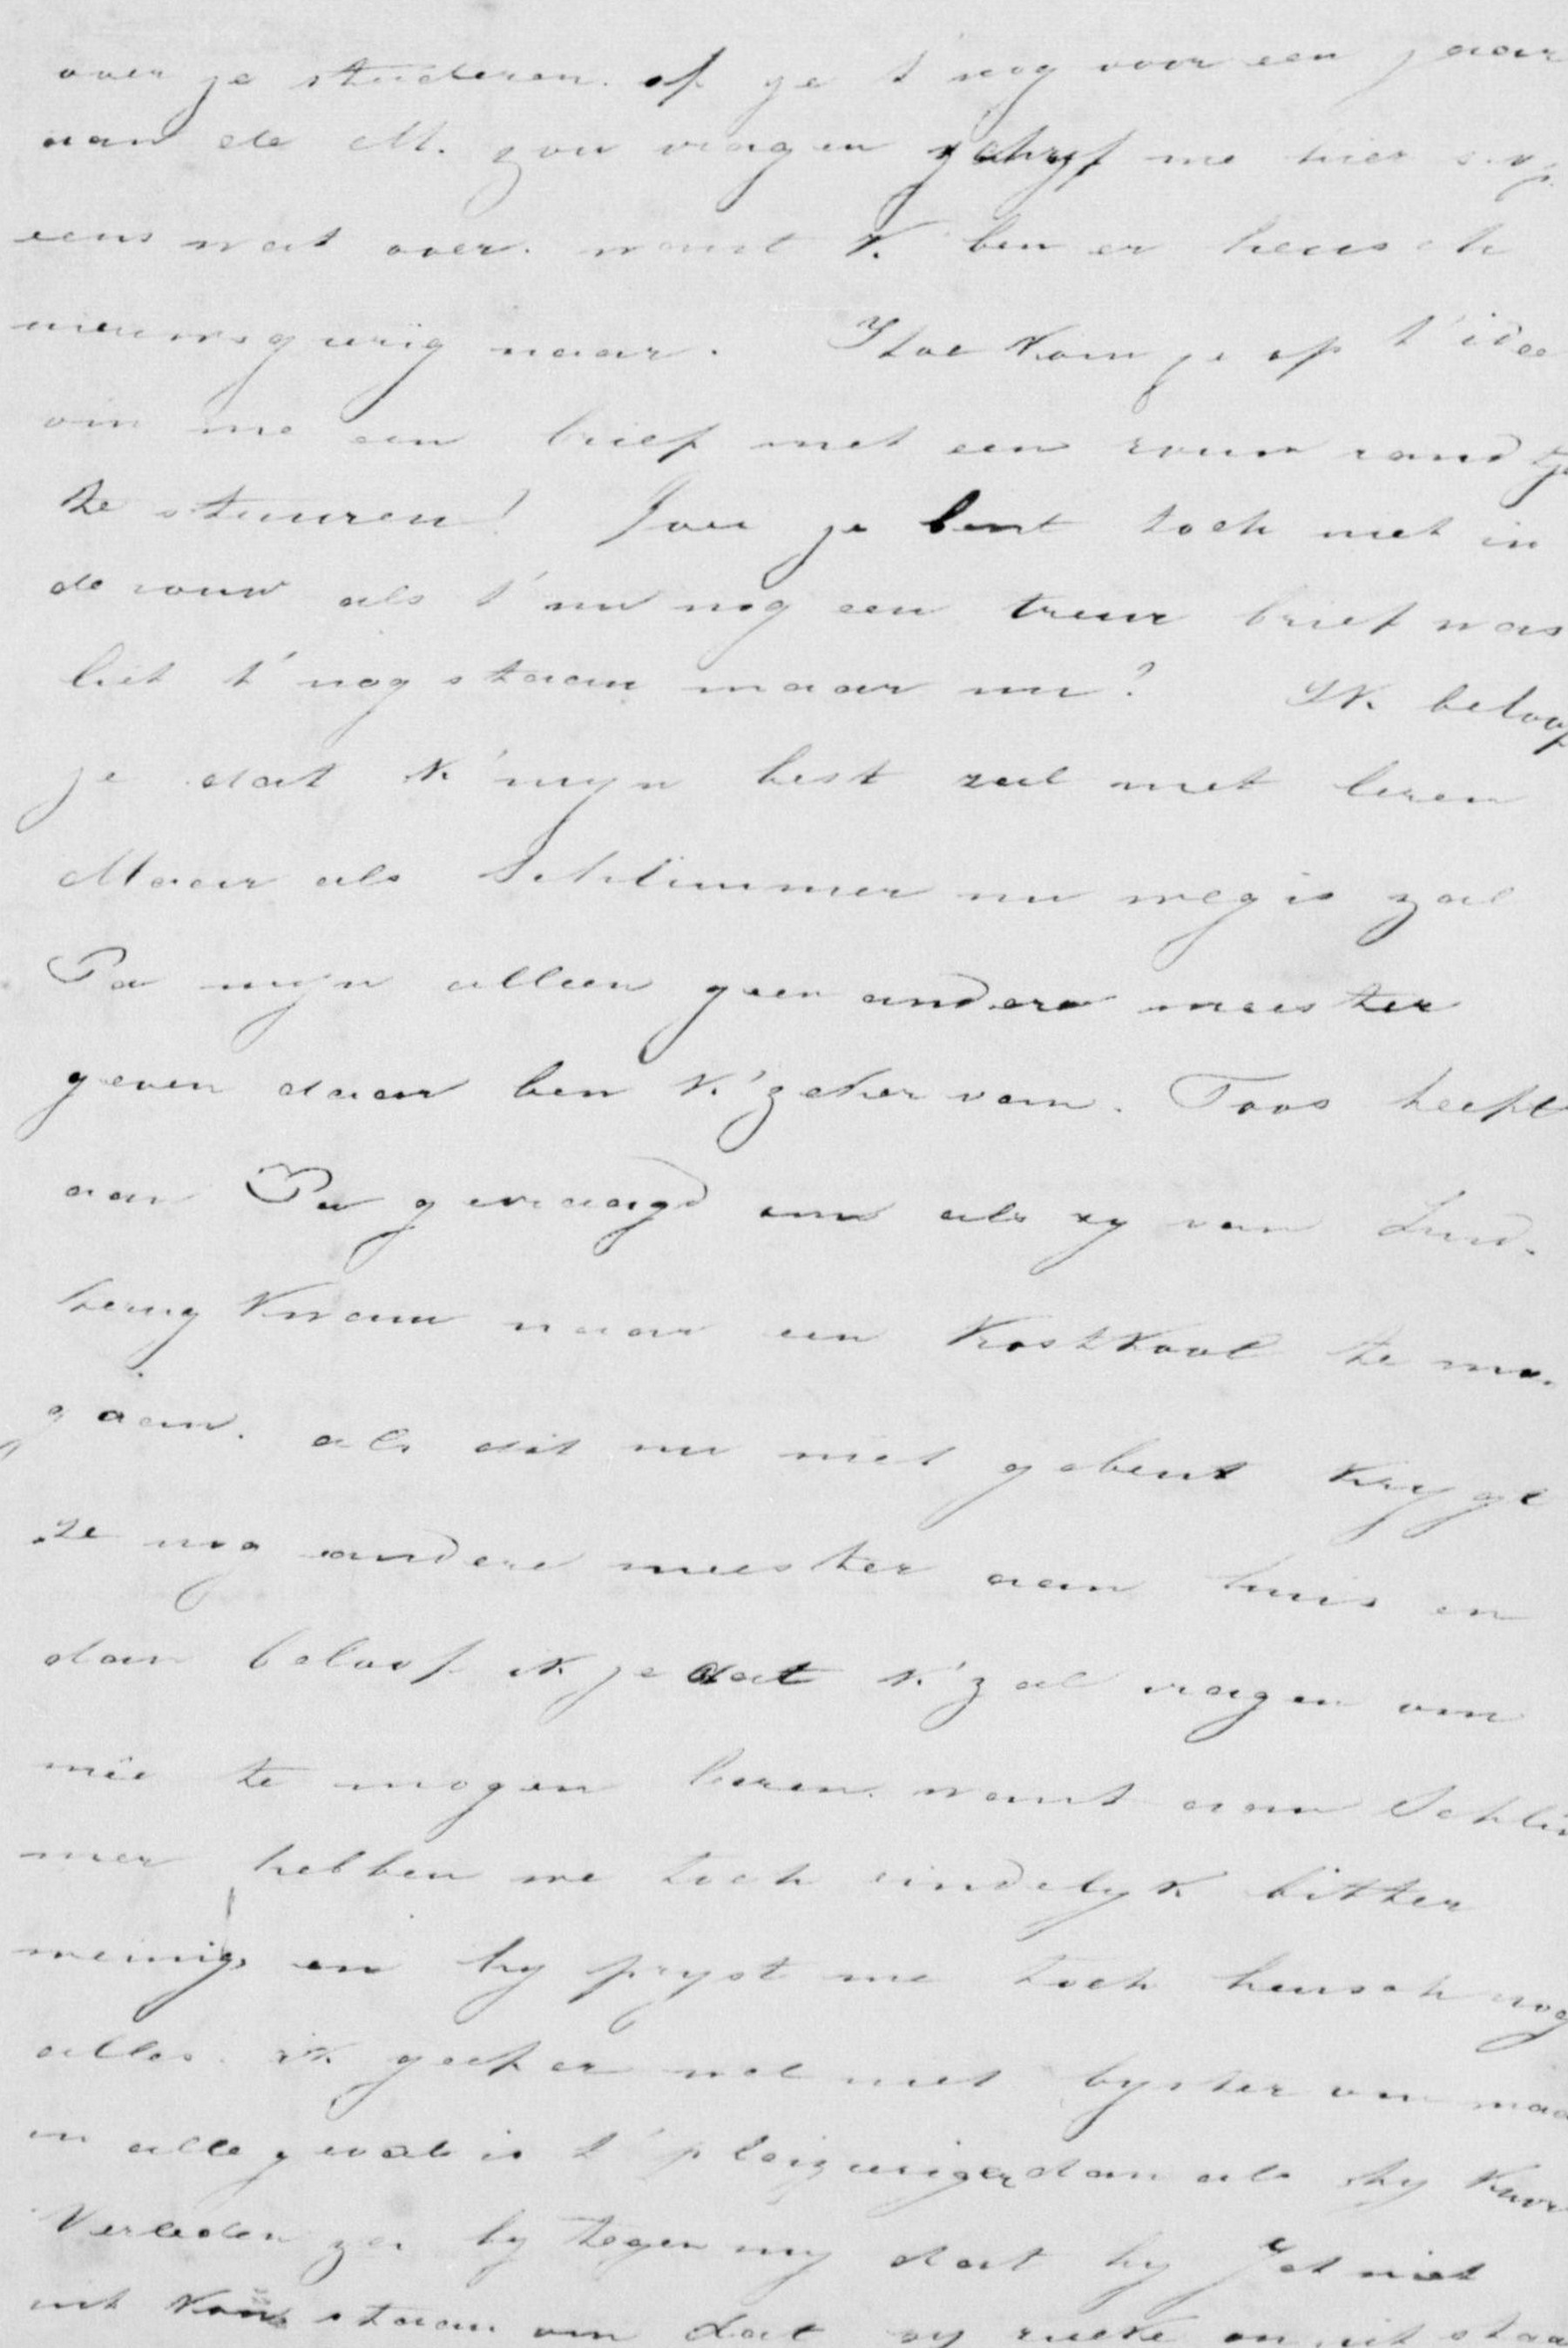 over je studeren. of ge t' nog voor een jaar
aan de M. zou vragen schryf me hier s.v.p.
eens wat over. want k' ben er heusch
nieuwsgurig naar. Hoe kom je op t' idee
om me een brief met een rouw randtje
te stuuren! Jou je bent toch niet in
de rouw als t' nu nog een treur brief was
liet t' nog staan maar nu? Ik beloof
je dat k' myn best zal met leren
Maar als Schlimmer nu weg is zal
Pa myn alleen geen andere meester
geven daar ben k' zeker van. Toos heeft
aan Pa gevraagd om als zy van Lund.
terug kwam naar een kostkool te mo.
gaan. als dit nu niet gebeurt krygt
ze nog andere meester aan huis en
dan beloof ik je dat k' zal vragen om
mêe te mogen leren. want aan Schlim
mer hebben we toch eindelyk bitter
weinig en hy pryst me toch heusch nog
alles. ik geef er wel niet byster om maa
in alle geval is t' pleizieriger dan als hy
Verleden zei hy tegen my dat hy Jet niet
uit kon staan om dat zy zulke